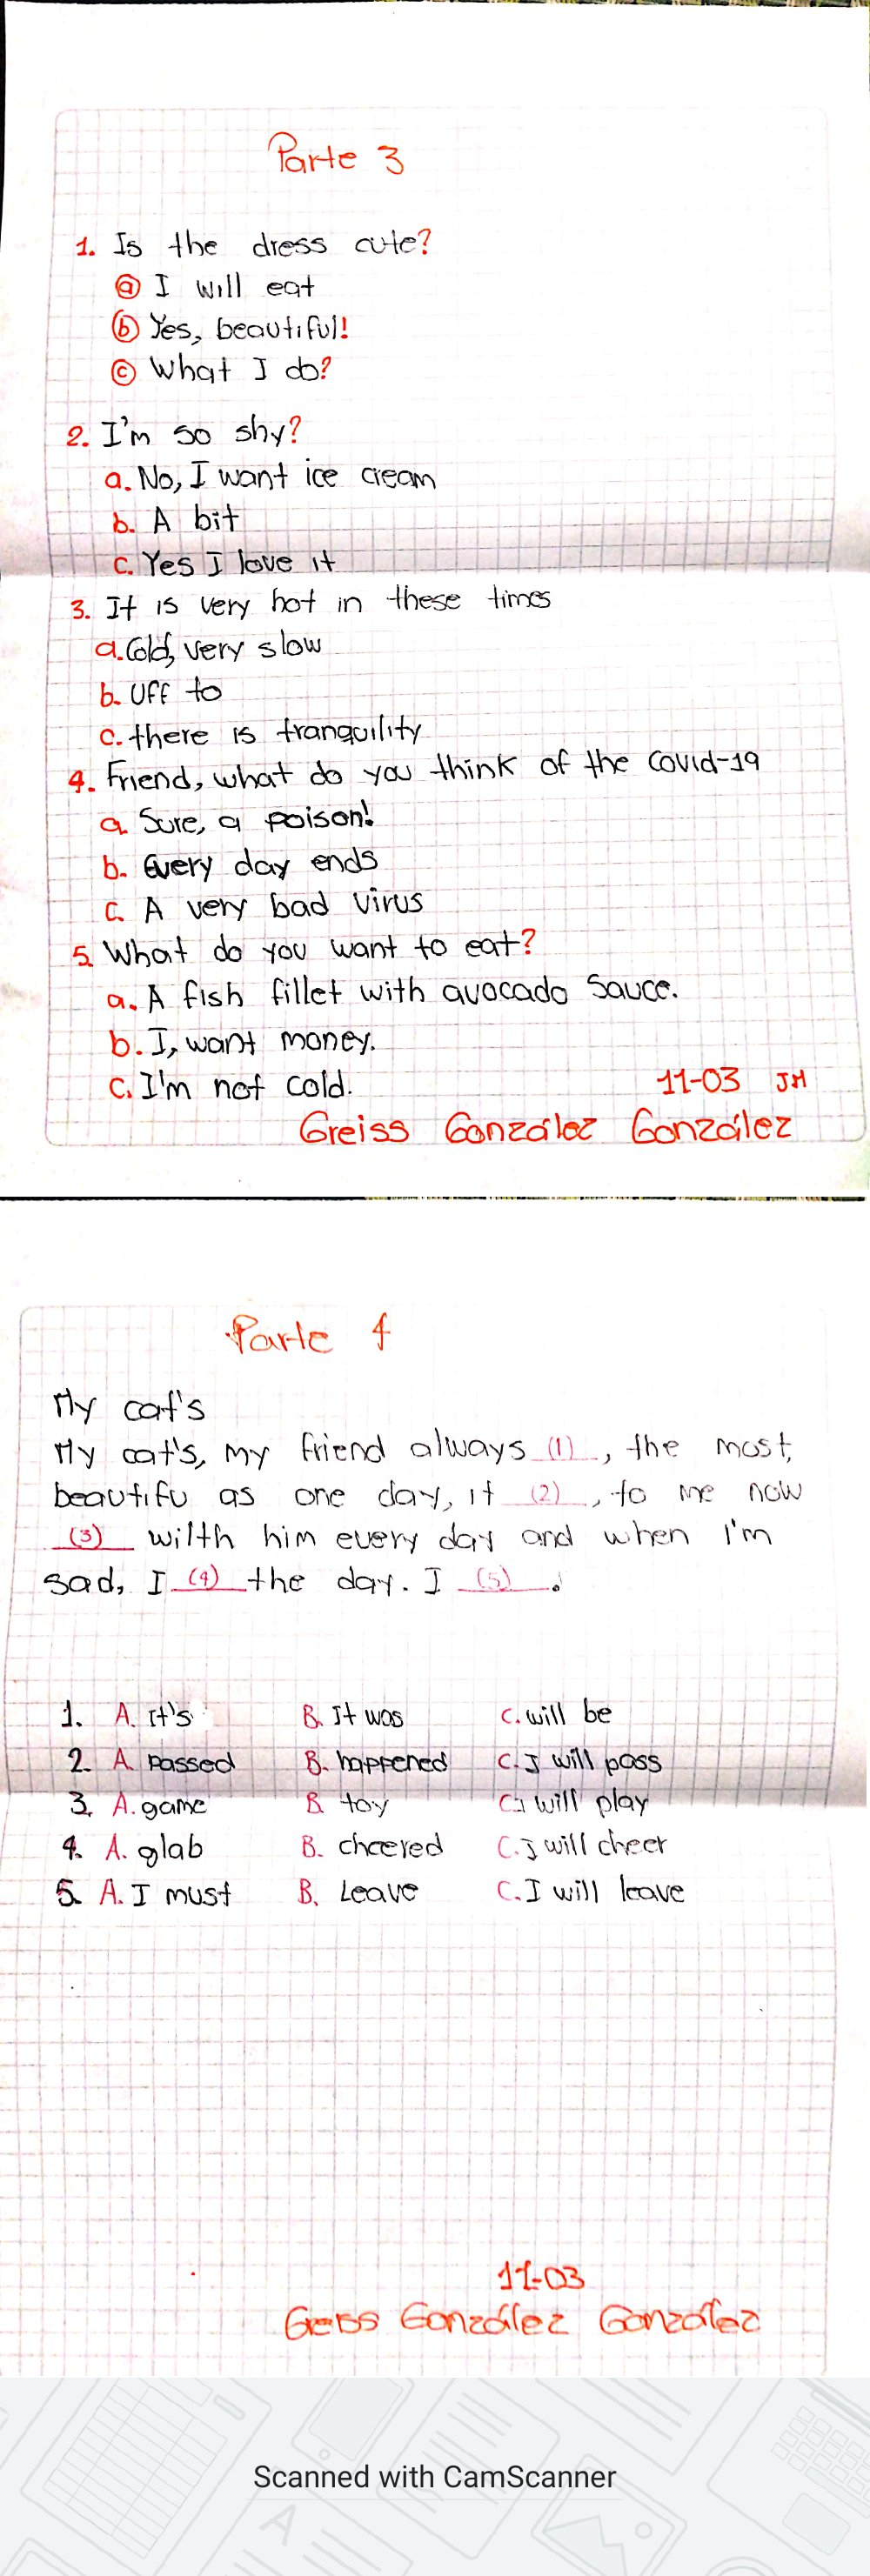 Parte 3
1. Is the dress cute?
a I will eat
b Yes, beautiful!
c What I do?
2. I'm so shy?
a. No, I want ice cream
b. A bit
c. Yes I love it
3. It is very hot in these times
a. Cold, very slow
b. Uff to
c. there is tranquility
4. Friend, what do you think of the Covid-19
a. Sure, a poison!
b. Every day ends
c. A very bad virus
5. What do you want to eat?
a. A fish fillet with avocado Sauce.
b. I, want money.
c. I'm not cold.
11-03 JM
Greiss González González
Parte 4
My cat's
My cat's, my friend always (1), the most,
beautifu as one day, it (2), to me now
(3) wilth him every day and when I'm
sad, I (4) the day. I (5).
1. A. It's B. It was C. will be
2. A. passed B. happened C. I will pass
3. A. game B. toy C. I will play
4. A. glab B. cheered C. I will cheer
5. A. I must B. Leave C. I will leave
11-03
Greiss González González
Scanned with CamScanner